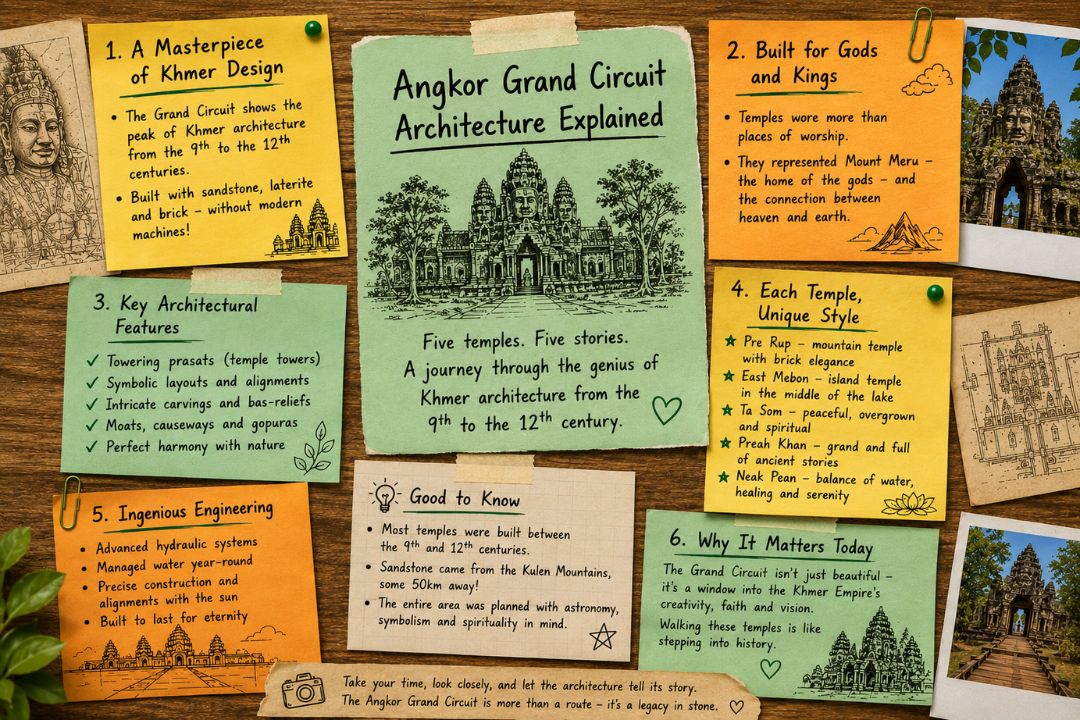 Angkor Grand Circuit
Architecture Explained
Five temples. Five stories.
A journey through the genius of
Khmer architecture from the
9th to the 12th century.
1. A Masterpiece
of Khmer Design
• The Grand Circuit shows the
peak of Khmer architecture
from the 9th to the 12th
centuries.
• Built with sandstone, laterite
and brick – without modern
machines!
2. Built for Gods
and Kings
• Temples wore more than
places of worship.
• They represented Mount Meru –
the home of the gods – and
the connection between
heaven and earth.
3. Key Architectural
Features
✓ Towering prasats (temple towers)
✓ Symbolic layouts and alignments
✓ Intricate carvings and bas-reliefs
✓ Moats, causeways and gopuras
✓ Perfect harmony with nature
4. Each Temple,
Unique Style
★ Pre Rup – mountain temple
with brick elegance
★ East Mebon – island temple
in the middle of the lake
★ Ta Som – peaceful, overgrown
and spiritual
★ Preah Khan – grand and full
of ancient stories
★ Neak Pean – balance of water,
healing and serenity
5. Ingenious Engineering
• Advanced hydraulic systems
• Managed water year-round
• Precise construction and
alignments with the sun
• Built to last for eternity
Good to Know
• Most temples were built between
the 9th and 12th centuries.
• Sandstone came from the Kulen Mountains,
some 50km away!
• The entire area was planned with astronomy,
symbolism and spirituality in mind.
6. Why It Matters Today
The Grand Circuit isn't just beautiful –
it's a window into the Khmer Empire's
creativity, faith and vision.
Walking these temples is like
stepping into history.
Take your time, look closely, and let the architecture tell its story.
The Angkor Grand Circuit is more than a route – it's a legacy in stone.